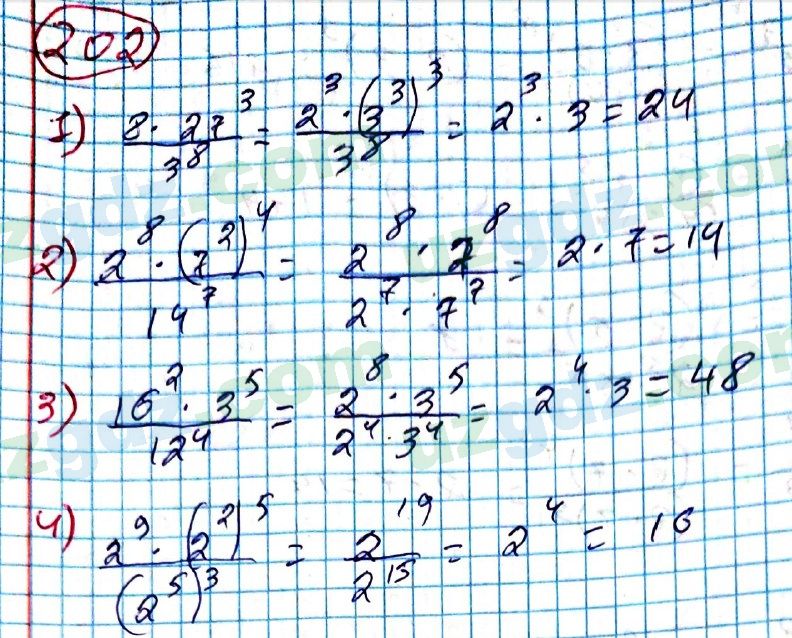 202
1) \frac{8 \cdot 27^3}{3^8} = \frac{2^3 \cdot (3^3)^3}{3^8} = 2^3 \cdot 3 = 24
2) \frac{2^8 \cdot (7^2)^4}{14^7} = \frac{2^8 \cdot 7^8}{2^7 \cdot 7^7} = 2 \cdot 7 = 14
3) \frac{16^2 \cdot 3^5}{12^4} = \frac{2^8 \cdot 3^5}{2^4 \cdot 3^4} = 2^4 \cdot 3 = 48
4) \frac{2^9 \cdot (2^2)^5}{(2^5)^3} = \frac{2^{19}}{2^{15}} = 2^4 = 16
uzgdz.com